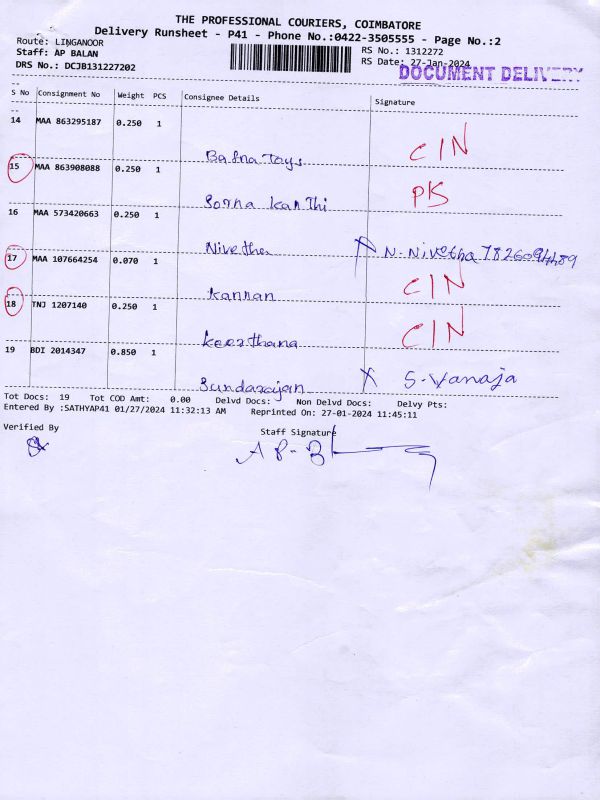 THE PROFESSIONAL COURIERS, COIMBATORE
Delivery Runsheet - P41 - Phone No.:0422-3505555 - Page No.:2
Route: LINGANOOR
Staff: AP BALAN
DRS No.: DCJB131227202
RS No.: 1312272
RS Date: 27-Jan-2024
DOCUMENT DELIVERY
S No Consignment No Weight PCS Consignee Details Signature
14 MAA 863295187 0.250 1
Bafna Toys CIN
15 MAA 863908088 0.250 1
Sorna Kanthi PK
16 MAA 573420663 0.250 1
Nivetha N. Nivetha
17 MAA 107664254 0.070 1
Kannan CIN
18 TNJ 1207140 0.250 1
Keerthana CIN
19 BDI 2014347 0.850 1
Sundarajan S. Vanaja
Tot Docs: 19 Tot COD Amt: 0.00 Delvd Docs: Non Delvd Docs: Delvy Pts:
Entered By :SATHYAP41 01/27/2024 11:32:13 AM Reprinted On: 27-01-2024 11:45:11
Verified By Staff Signature
A P. B